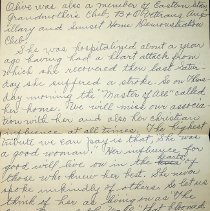 Olive was also a member of Eastern Star,
Grandmothers Club, B+P Veterans Aux-
illary and Sunset Home Renovation
Club.
She was hospitalized about a year
ago having had a heart attack from
which she recovered then last Satur-
day she suffered a stroke. So on Thurs-
day morning the "Master of All" called
her home. We will miss our associa-
tion with her and also her christian
influence at all times. The highest
tribute we can pay is that "She was
a good woman". Her influence for
good will live on in the hearts of
those who knew her best. She never
spoke unkindly of others so let us
think of her as living in the
to that blooms